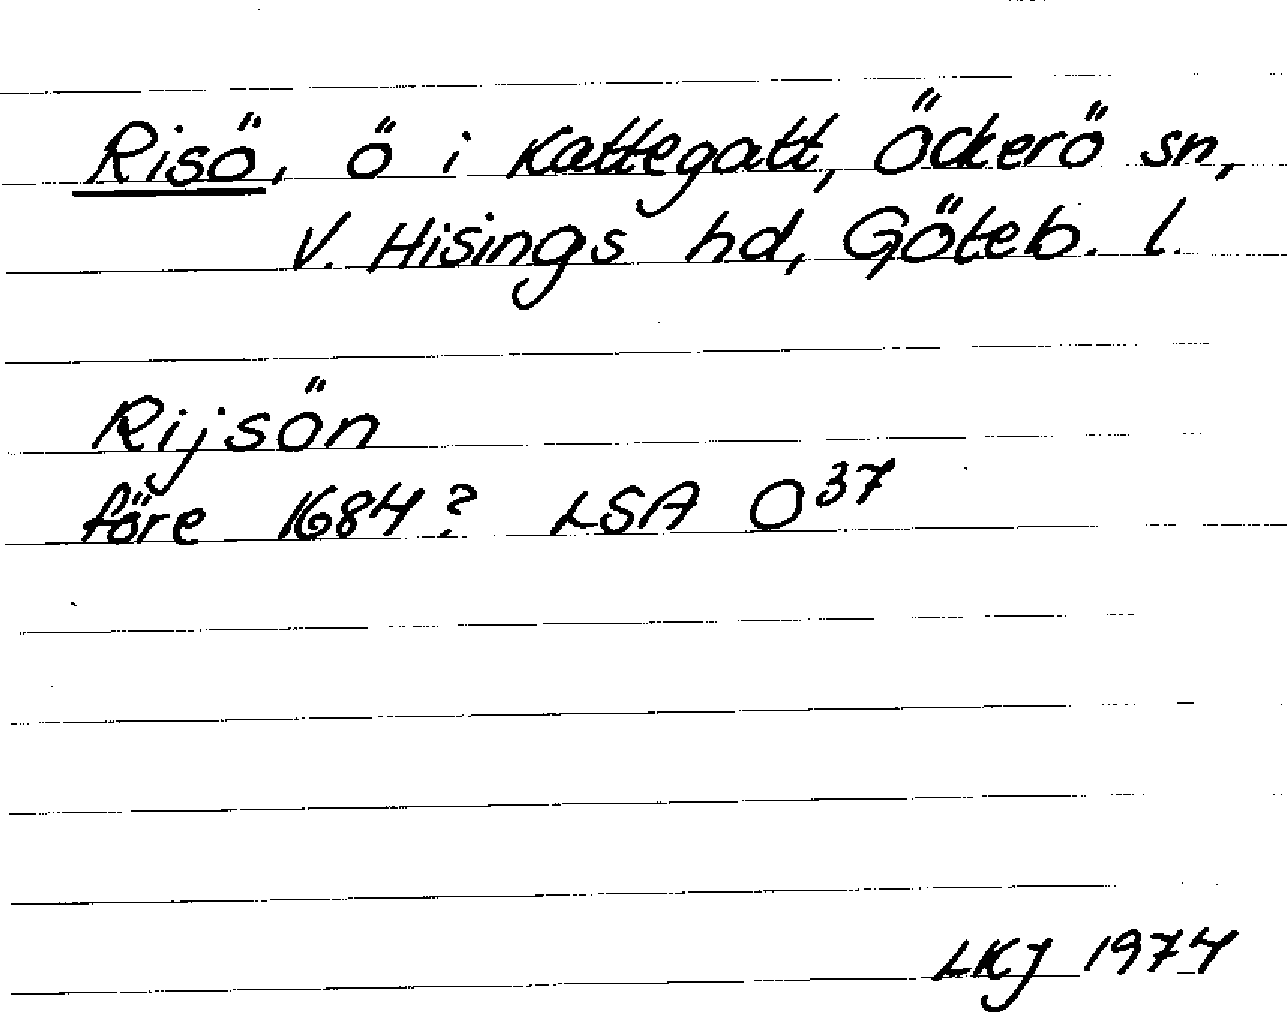 Risö, ö i Kattegatt, Öckerö sn,
V. Hisings hd, Göteb. l.
Rijsön
före 1684? LSA O³⁷
LKJ 1974